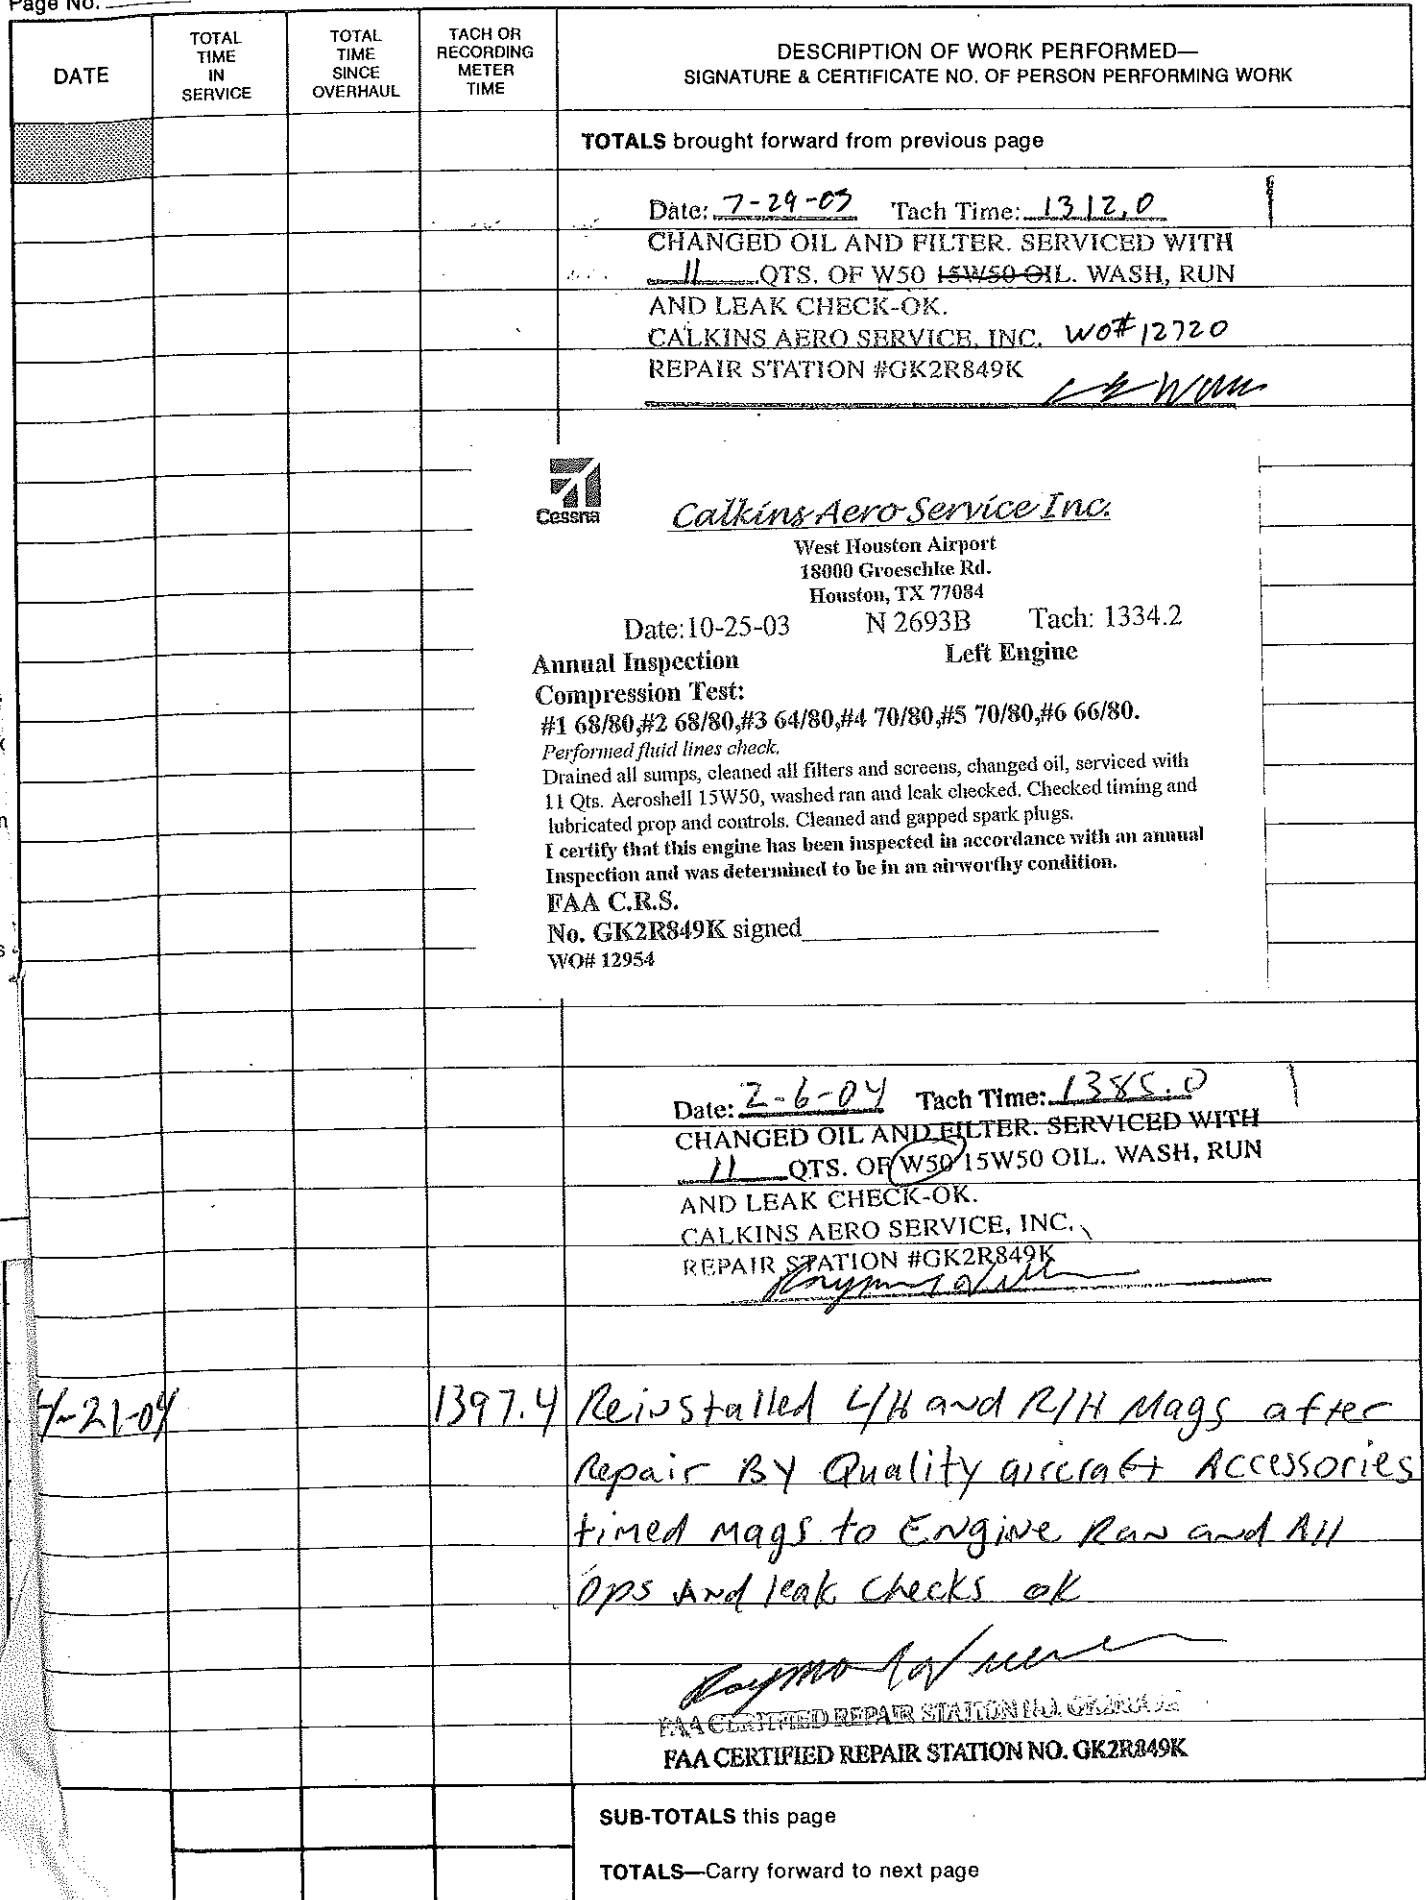 Page No.
DATE
TOTAL
TIME
IN
SERVICE
TOTAL
TIME
SINCE
OVERHAUL
TACH OR
RECORDING
METER
TIME
DESCRIPTION OF WORK PERFORMED—
SIGNATURE & CERTIFICATE NO. OF PERSON PERFORMING WORK
TOTALS brought forward from previous page
Date: 7-29-03 Tach Time: 1312,0
CHANGED OIL AND FILTER. SERVICED WITH
11 QTS. OF W50 15W50 OIL. WASH, RUN
AND LEAK CHECK-OK.
CALKINS AERO SERVICE, INC. WO# 12720
REPAIR STATION #GK2R849K
Cessna
Calkins Aero Service Inc.
West Houston Airport
18000 Groeschke Rd.
Houston, TX 77084
Date:10-25-03 N 2693B Tach: 1334.2
Annual Inspection Left Engine
Compression Test:
#1 68/80,#2 68/80,#3 64/80,#4 70/80,#5 70/80,#6 66/80.
Performed fluid lines check.
Drained all sumps, cleaned all filters and screens, changed oil, serviced with
11 Qts. Aeroshell 15W50, washed ran and leak checked. Checked timing and
lubricated prop and controls. Cleaned and gapped spark plugs.
I certify that this engine has been inspected in accordance with an annual
Inspection and was determined to be in an airworthy condition.
FAA C.R.S.
No. GK2R849K signed
WO# 12954
Date: 2-6-04 Tach Time: 1385.0
CHANGED OIL AND FILTER. SERVICED WITH
11 QTS. OF W50 15W50 OIL. WASH, RUN
AND LEAK CHECK-OK.
CALKINS AERO SERVICE, INC.
REPAIR STATION #GK2R849K
4-21-04 1397.4 Reinstalled L/H and R/H Mags after
Repair BY Quality aircraft Accessories
timed mags to Engine Ran and All
Ops And leak Checks ok
FAA CERTIFIED REPAIR STATION NO.
FAA CERTIFIED REPAIR STATION NO. GK2R849K
SUB-TOTALS this page
TOTALS—Carry forward to next page